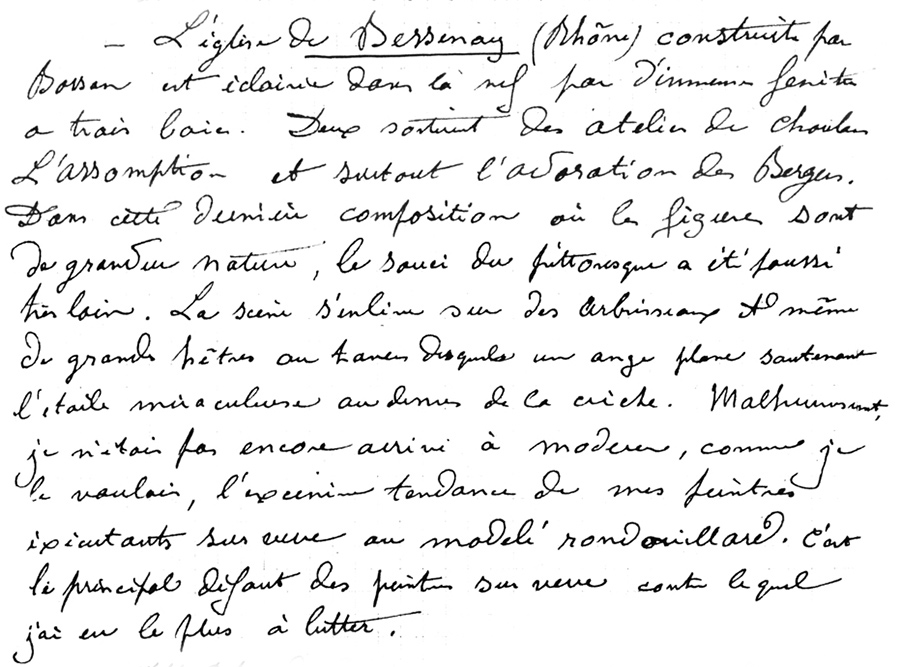 — L'église de Bessenay (Rhône) construite par
Bossan est éclairée dans la nef par d'immenses fenêtres
a trois baies. Deux sortirent des atelier de Choulans
L'assomption et surtout l'adoration des Bergers.
Dans cette dernière composition où les figures sont
de grandeur nature, le souci du pittoresque a été poussé
très loin. La scène s'enlève sur des arbrisseaux et même
de grands hêtres au travers desquels un ange plane soutenant
l'étoile miraculeuse au dessus de la crèche. Malheureusement,
je n'étais pas encore arrivé à moderer, comme je
le voulais, l'excessive tendance de mes peintres
exécutants sur verre au modelé rondouillard. C'est
le principal défaut des peintres sur verre contre lequel
j'ai eu le plus à lutter.